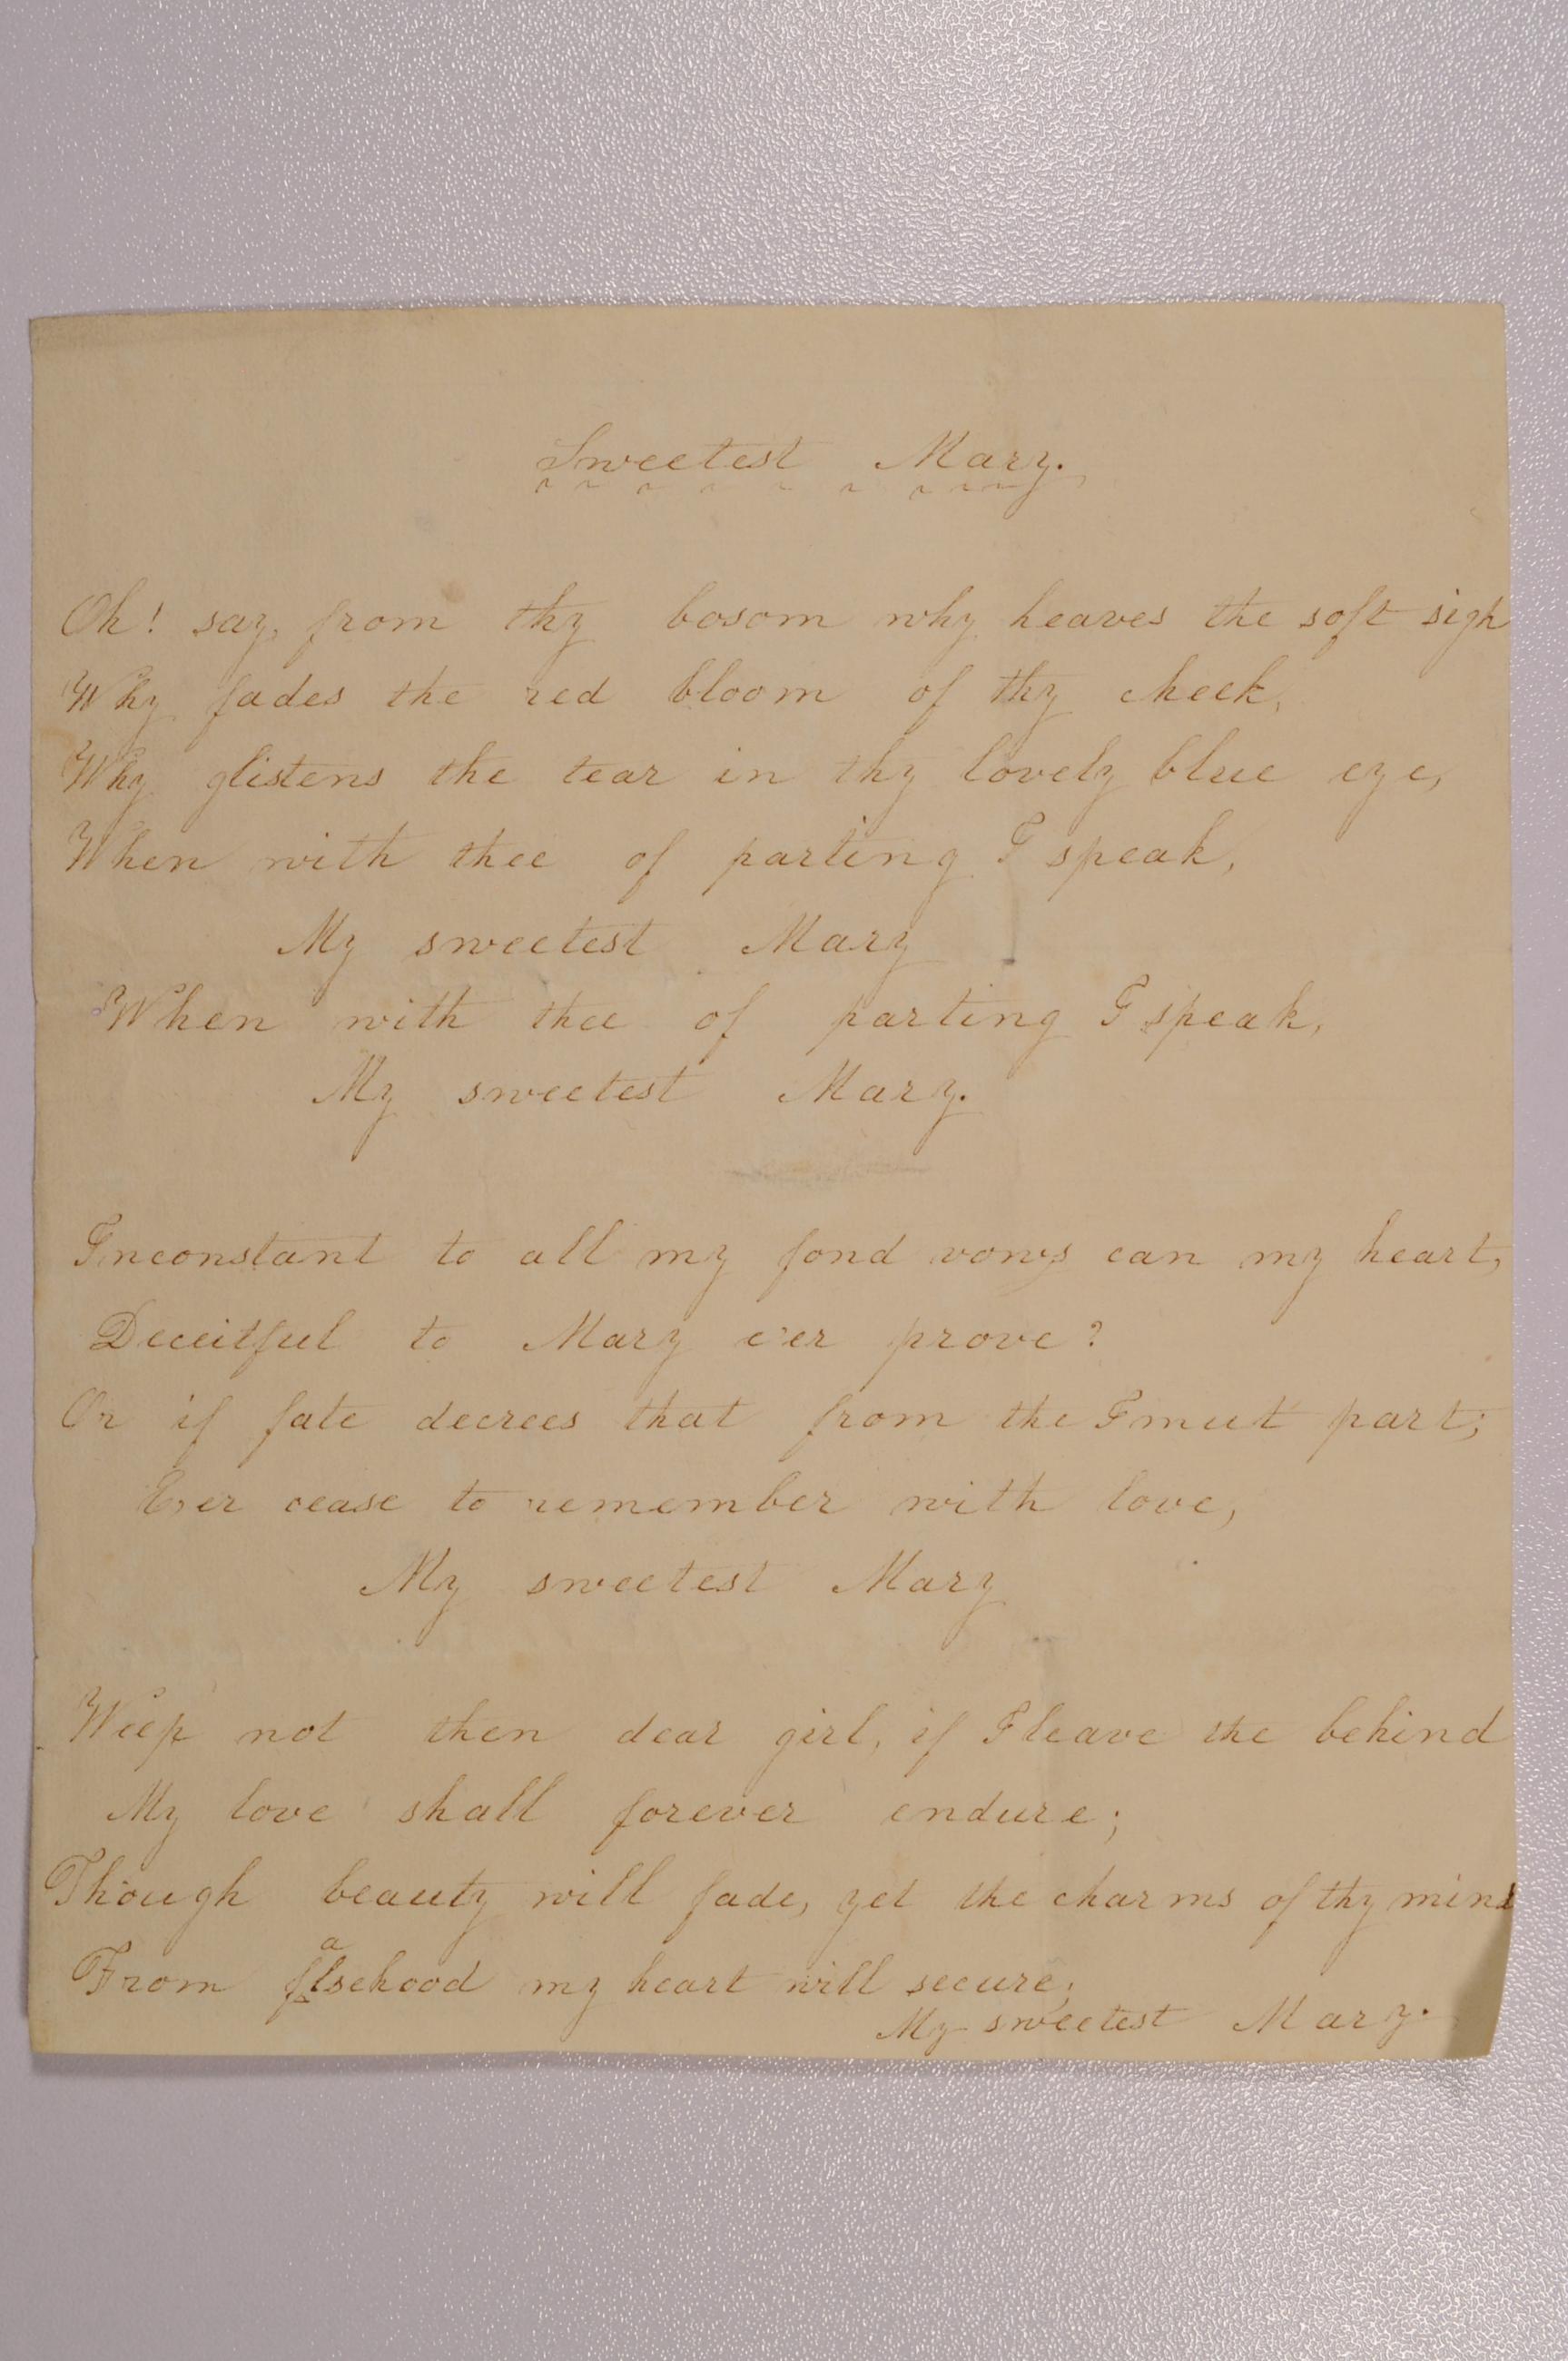 Sweetest Mary.
Oh! say, from thy bosom why heaves the soft sigh
Why fades the red bloom of thy cheek,
Why glistens the tear in thy lovely blue eye,
When with thee of parting I speak,
My sweetest Mary
When with thee of parting I speak,
My sweetest Mary.
Inconstant to all my fond vows can my heart,
Deceitful to Mary e'er prove?
Or if fate decrees that from the I must part;
Ever cease to remember with love,
My sweetest Mary
Weep not then dear girl, if I leave the behind
My love shall forever endure;
Though beauty will fade, yet the charms of thy mind
From falsehood my heart will secure;
My sweetest Mary.